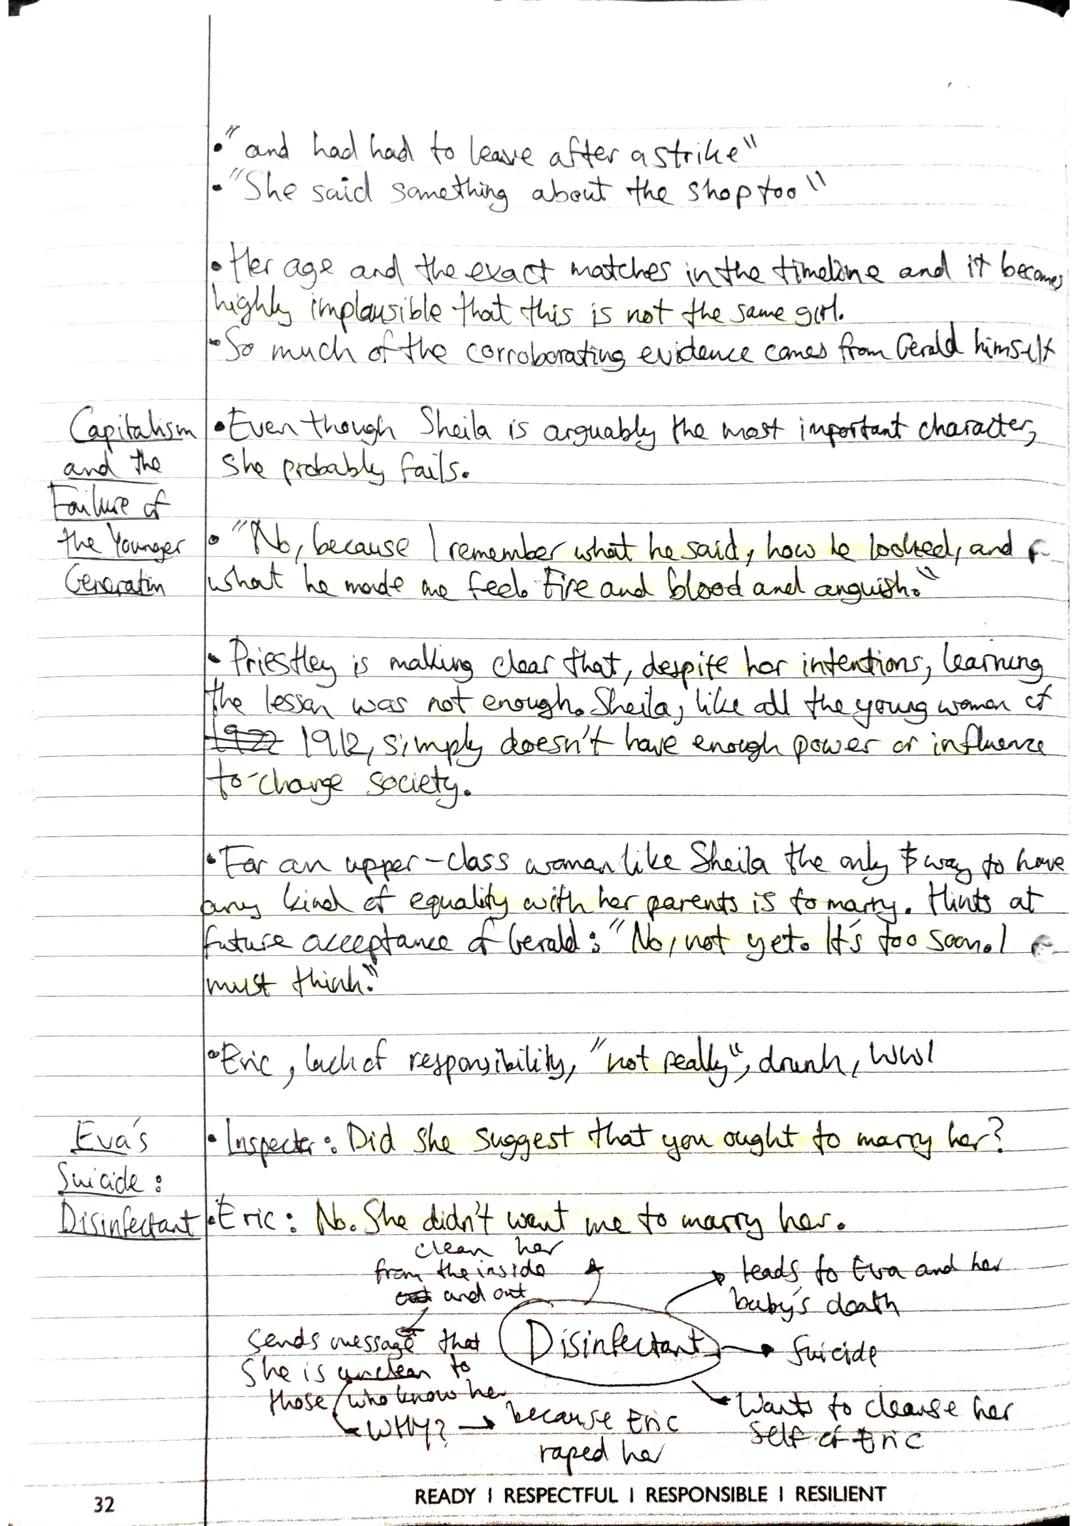 •"and had had to leave after a strike"
•"She said something about the shop too"
•Her age and the exact matches in the timeline and it becomes
highly implausible that this is not the same girl.
•So much of the corroborating evidence comes from Gerald himself
Capitalism
and the
Failure of
the Younger
Generation
•Even though Sheila is arguably the most important character,
She probably fails.
•"No, because I remember what he said, how he looked, and
what he made me feel. Fire and blood and anguish."
•Priestley is making clear that, despite her intentions, learning
the lesson was not enough. Sheila, like all the young women of
1922 1912, simply doesn't have enough power or influence
to change society.
•For an upper-class woman like Sheila the only way to have
any kind of equality with her parents is to marry. Hints at
future acceptance of Gerald: "No, not yet. It's too soon. I
must think."
•Eric, lack of responsibility, "not really", drunk, WW1
Eva's
Suicide:
Disinfectant
•Inspector: Did she suggest that you ought to marry her?
•Eric: No. She didn't want me to marry her.
clean her
from the inside
out and out
sends message that
She is unclean to
those who know her
WHY? → because Eric
raped her
Disinfectant
leads to Eva and her
baby's death
Suicide
Wants to cleanse her
self of Eric
32
READY | RESPECTFUL | RESPONSIBLE | RESILIENT